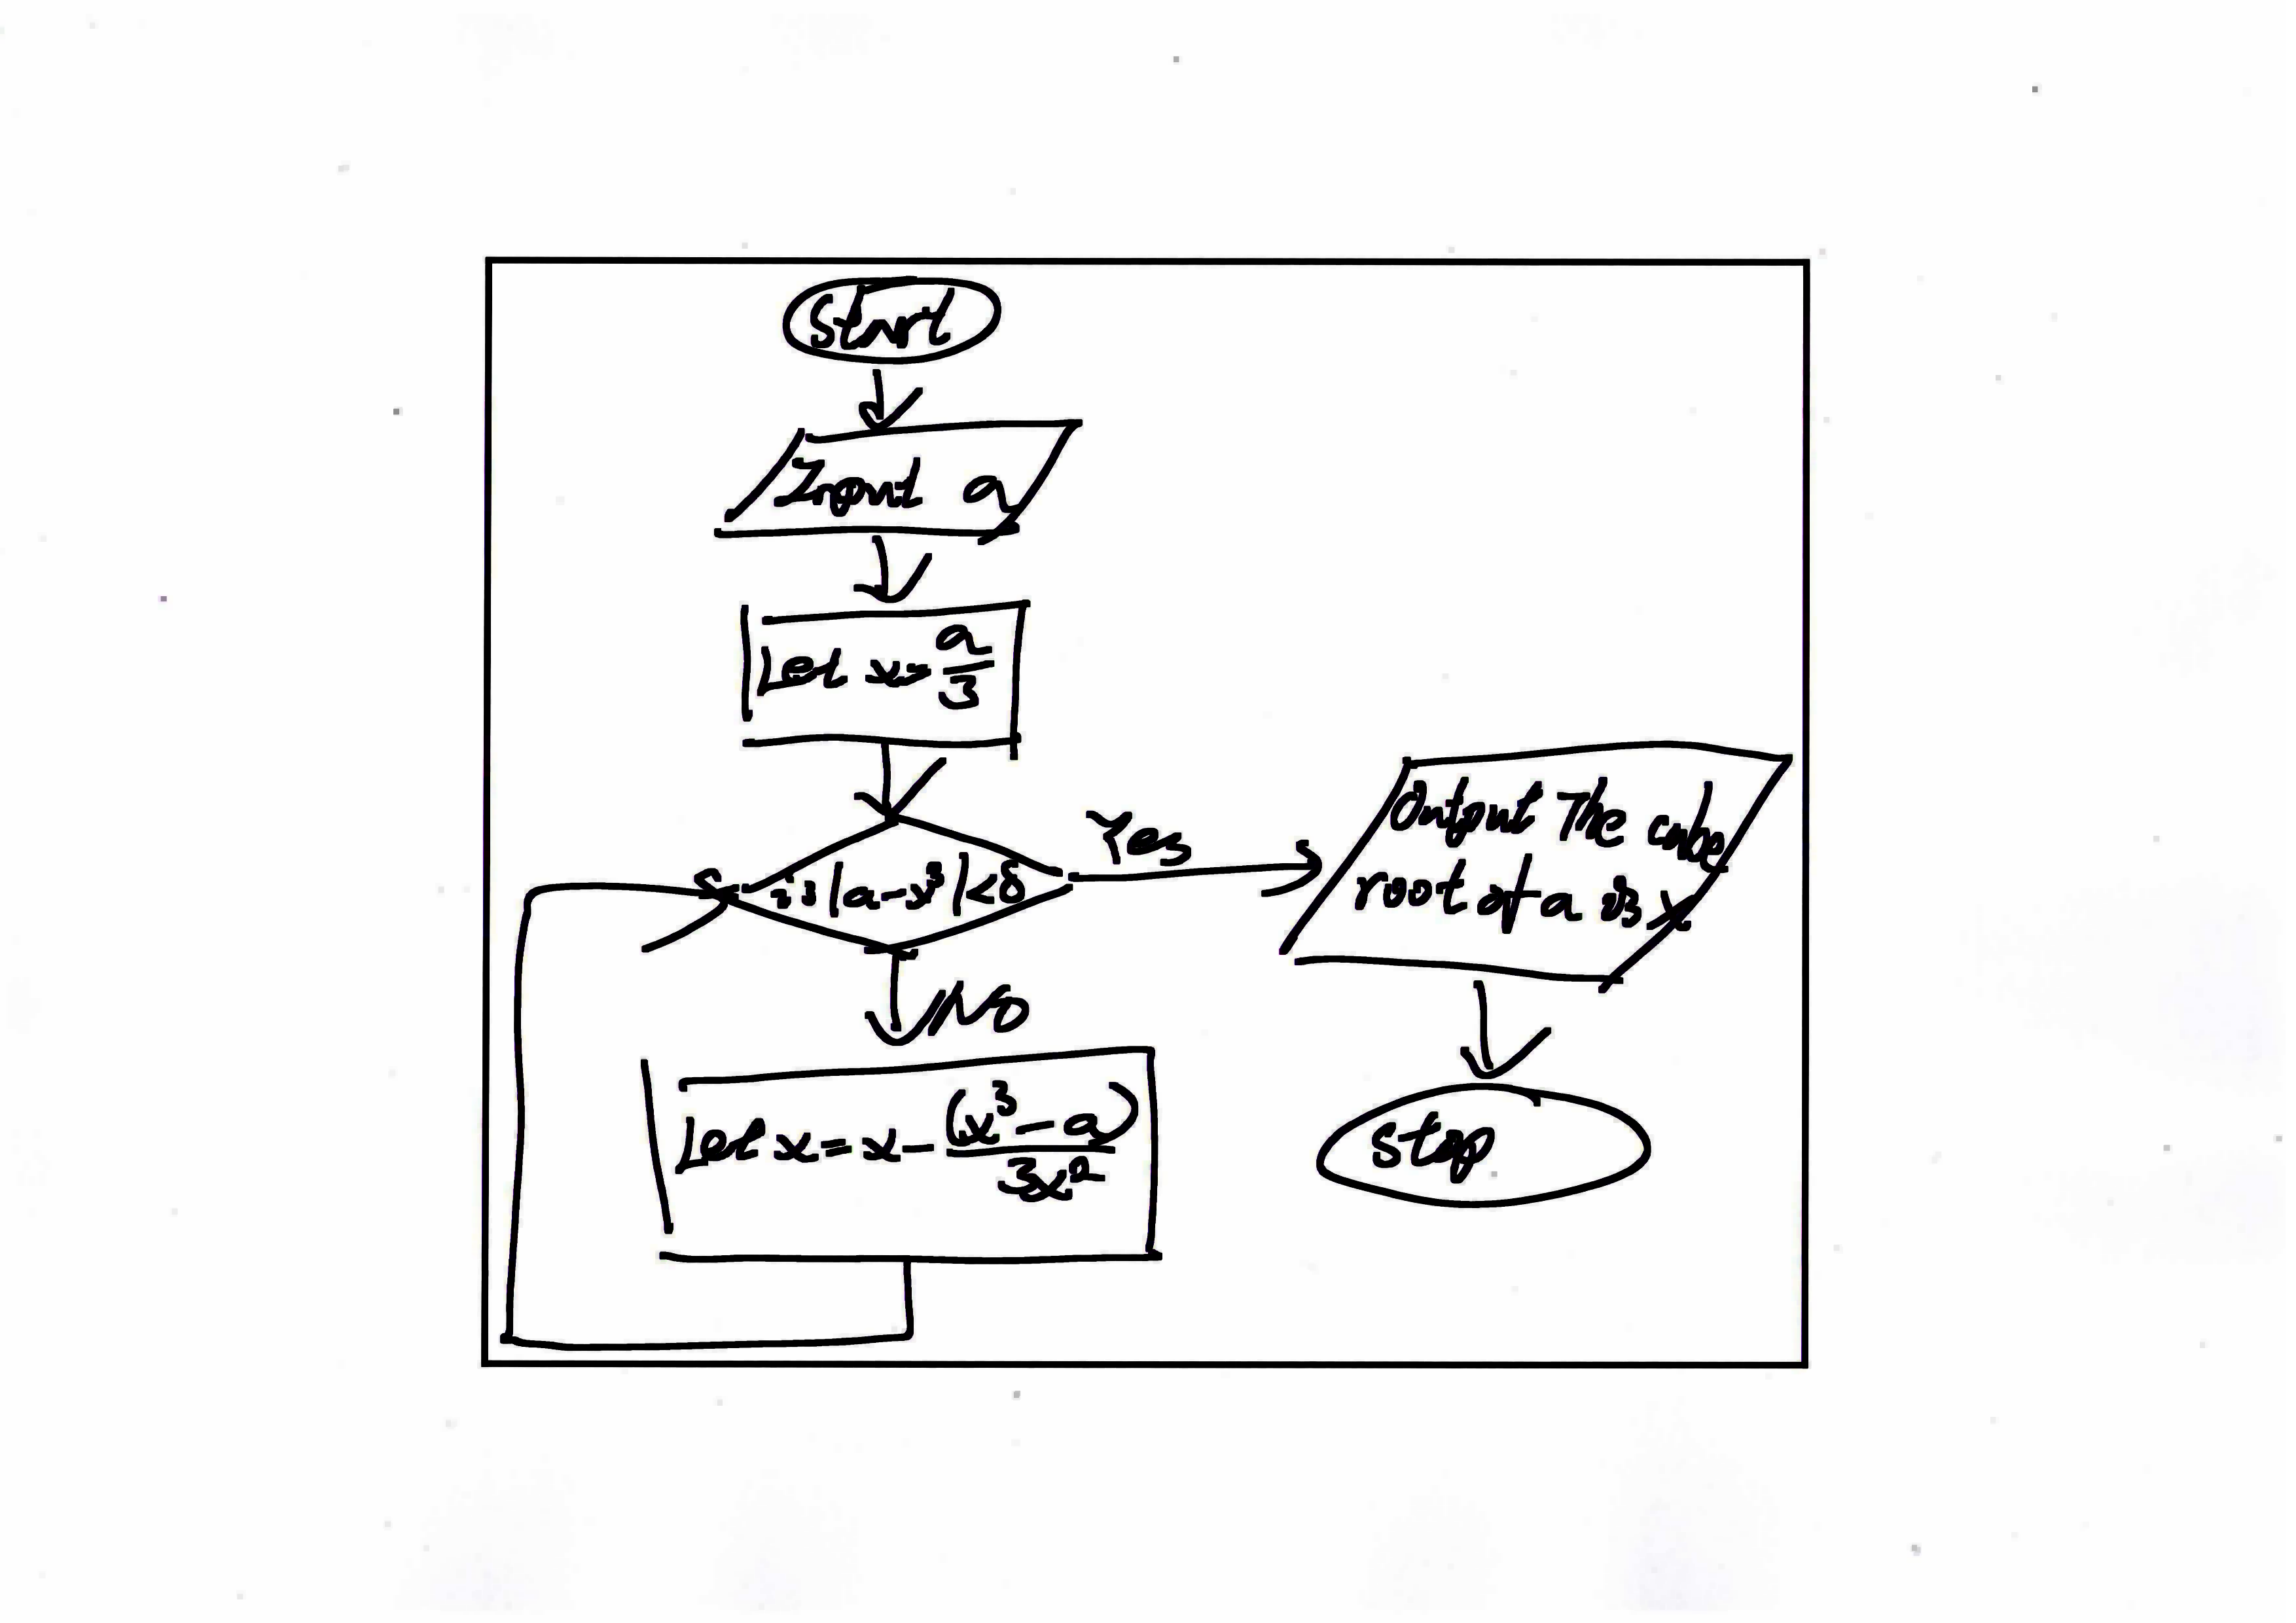 Start
Input a
Let x=a/3
is |a-x³|<δ
Yes
Output The cube
root of a is x
No
Let x=x-(x³-a)/3x²
stop